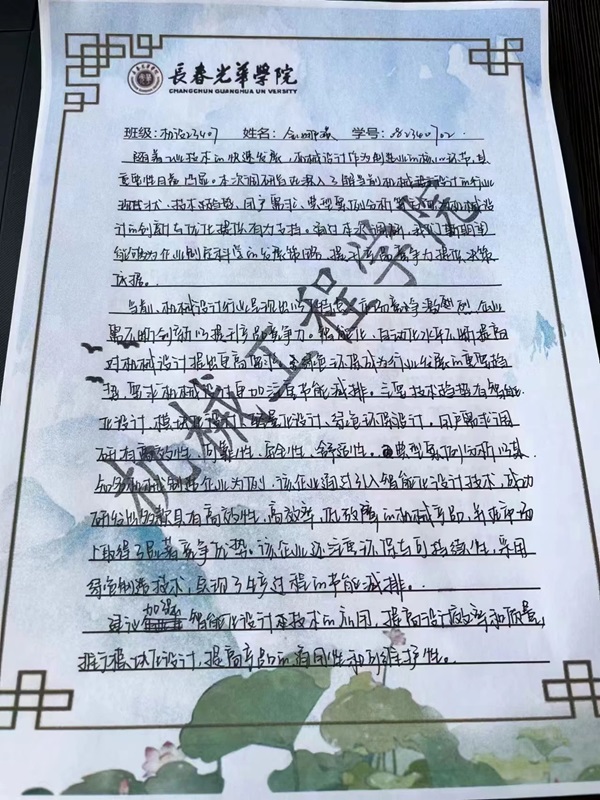 長春光華學院
CHANGCHUN GUANGHUA UNIVERSITY
班级: 机设23407 姓名: 学号:
随着工业技术的快速发展,机械设计作为制造业的核心环节,其
重要性日益凸显。本次调研旨在深入了解当前机械设计的行业
现状、技术趋势、用户需求、典型案例分析等,为机械设
计的创新与优化提供有力支持。通过本次调研,我们期望
能够为企业制定科学的发展策略,提升产品竞争力提供决策
依据。
当前,机械设计行业呈现出以下特点:市场竞争激烈,企业
需不断创新以提升产品竞争力。智能化、自动化水平不断提高
对机械设计提出更高要求。绿色环保成为行业发展的重要趋
势,要求机械设计更加注重节能减排。主要技术趋势有智能
化设计、模块化设计、轻量化设计、绿色环保设计。用户需求调
研有高效性、可靠性、安全性、舒适性。典型案例分析以某
知名机械制造企业为例,该企业通过引入智能化设计技术,成功
研发出多款具有高效性,高效率,低故障的机械产品,并在市场
上取得了显著竞争优势。该企业还注重环保与可持续性,采用
绿色制造技术,实现了生产过程的节能减排。
建议加强智能化设计及技术的应用,提高设计效率和质量,
推行模块化设计,提高产品的通用性和可维护性。
机械工程学院